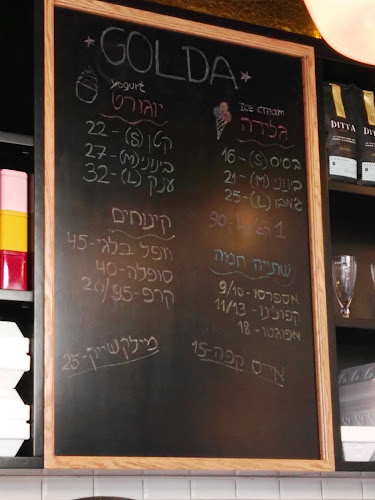 GOLDA
Ice cream
גלידה
בסיס (S) - 16
בינוני (M) - 21
ג'מבו (L) - 25
1 קג' - 90
שתייה חמה
אספרסו - 9/10
קפוצ'ינו - 11/13
אפוגטו - 18
אייס קפה - 15
yogurt
יוגורט
קטן (S) - 22
בינוני (M) - 27
ענק (L) - 32
קינוחים
וופל בלגי - 45
סופלה - 40
קרפ - 20/35
מילקשייק - 25
DITTA
DITTA